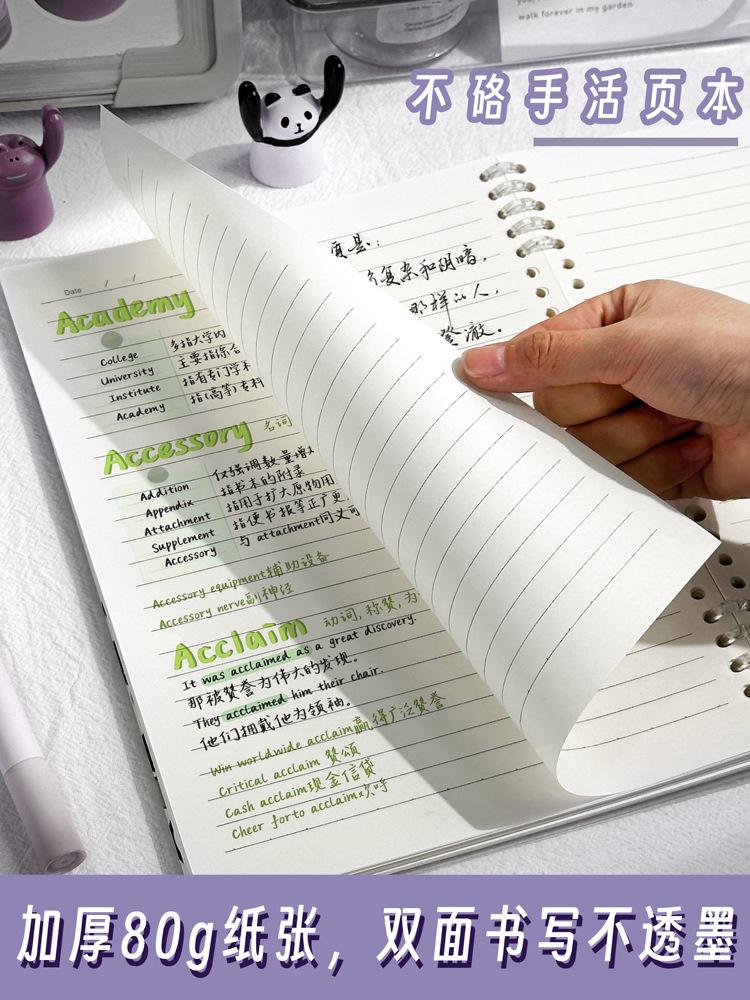 walk forever in my garden
不硌手活页本
Date / /
Academy
College 多指大学内
University 主要指综合
Institute 指有专门学术
Academy 指(高等)专科
Accessory 名词
Addition 仅强调数量增加
Appendix 指书末的附录
Attachment 指用于扩大原物用
Supplement 指使书报等正产更
Accessory 与 attachment同义可
Accessory equipment辅助设备
Accessory nerve副神经
Acclaim 动词, 称赞, 为
It was acclaimed as a great discovery.
那被赞誉为伟大的发现。
They acclaimed him their chair.
他们拥戴他为领袖。
Win worldwide acclaim赢得广泛赞誉
Critical acclaim 赞颂
Cash acclaim现金信贷
Cheer for to acclaim
复杂和阴暗,
那样的人,
澄澈。
加厚80g纸张，双面书写不透墨